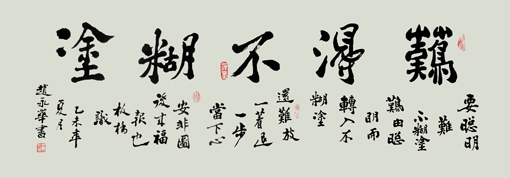 難得不糊塗
要聰明
難
不糊塗
難由聰
明而
轉入不
糊塗
還難放
一著退
一步
當下心
安非圖
後来福
報也
板橋
識
乙未年
夏月
趙永華書